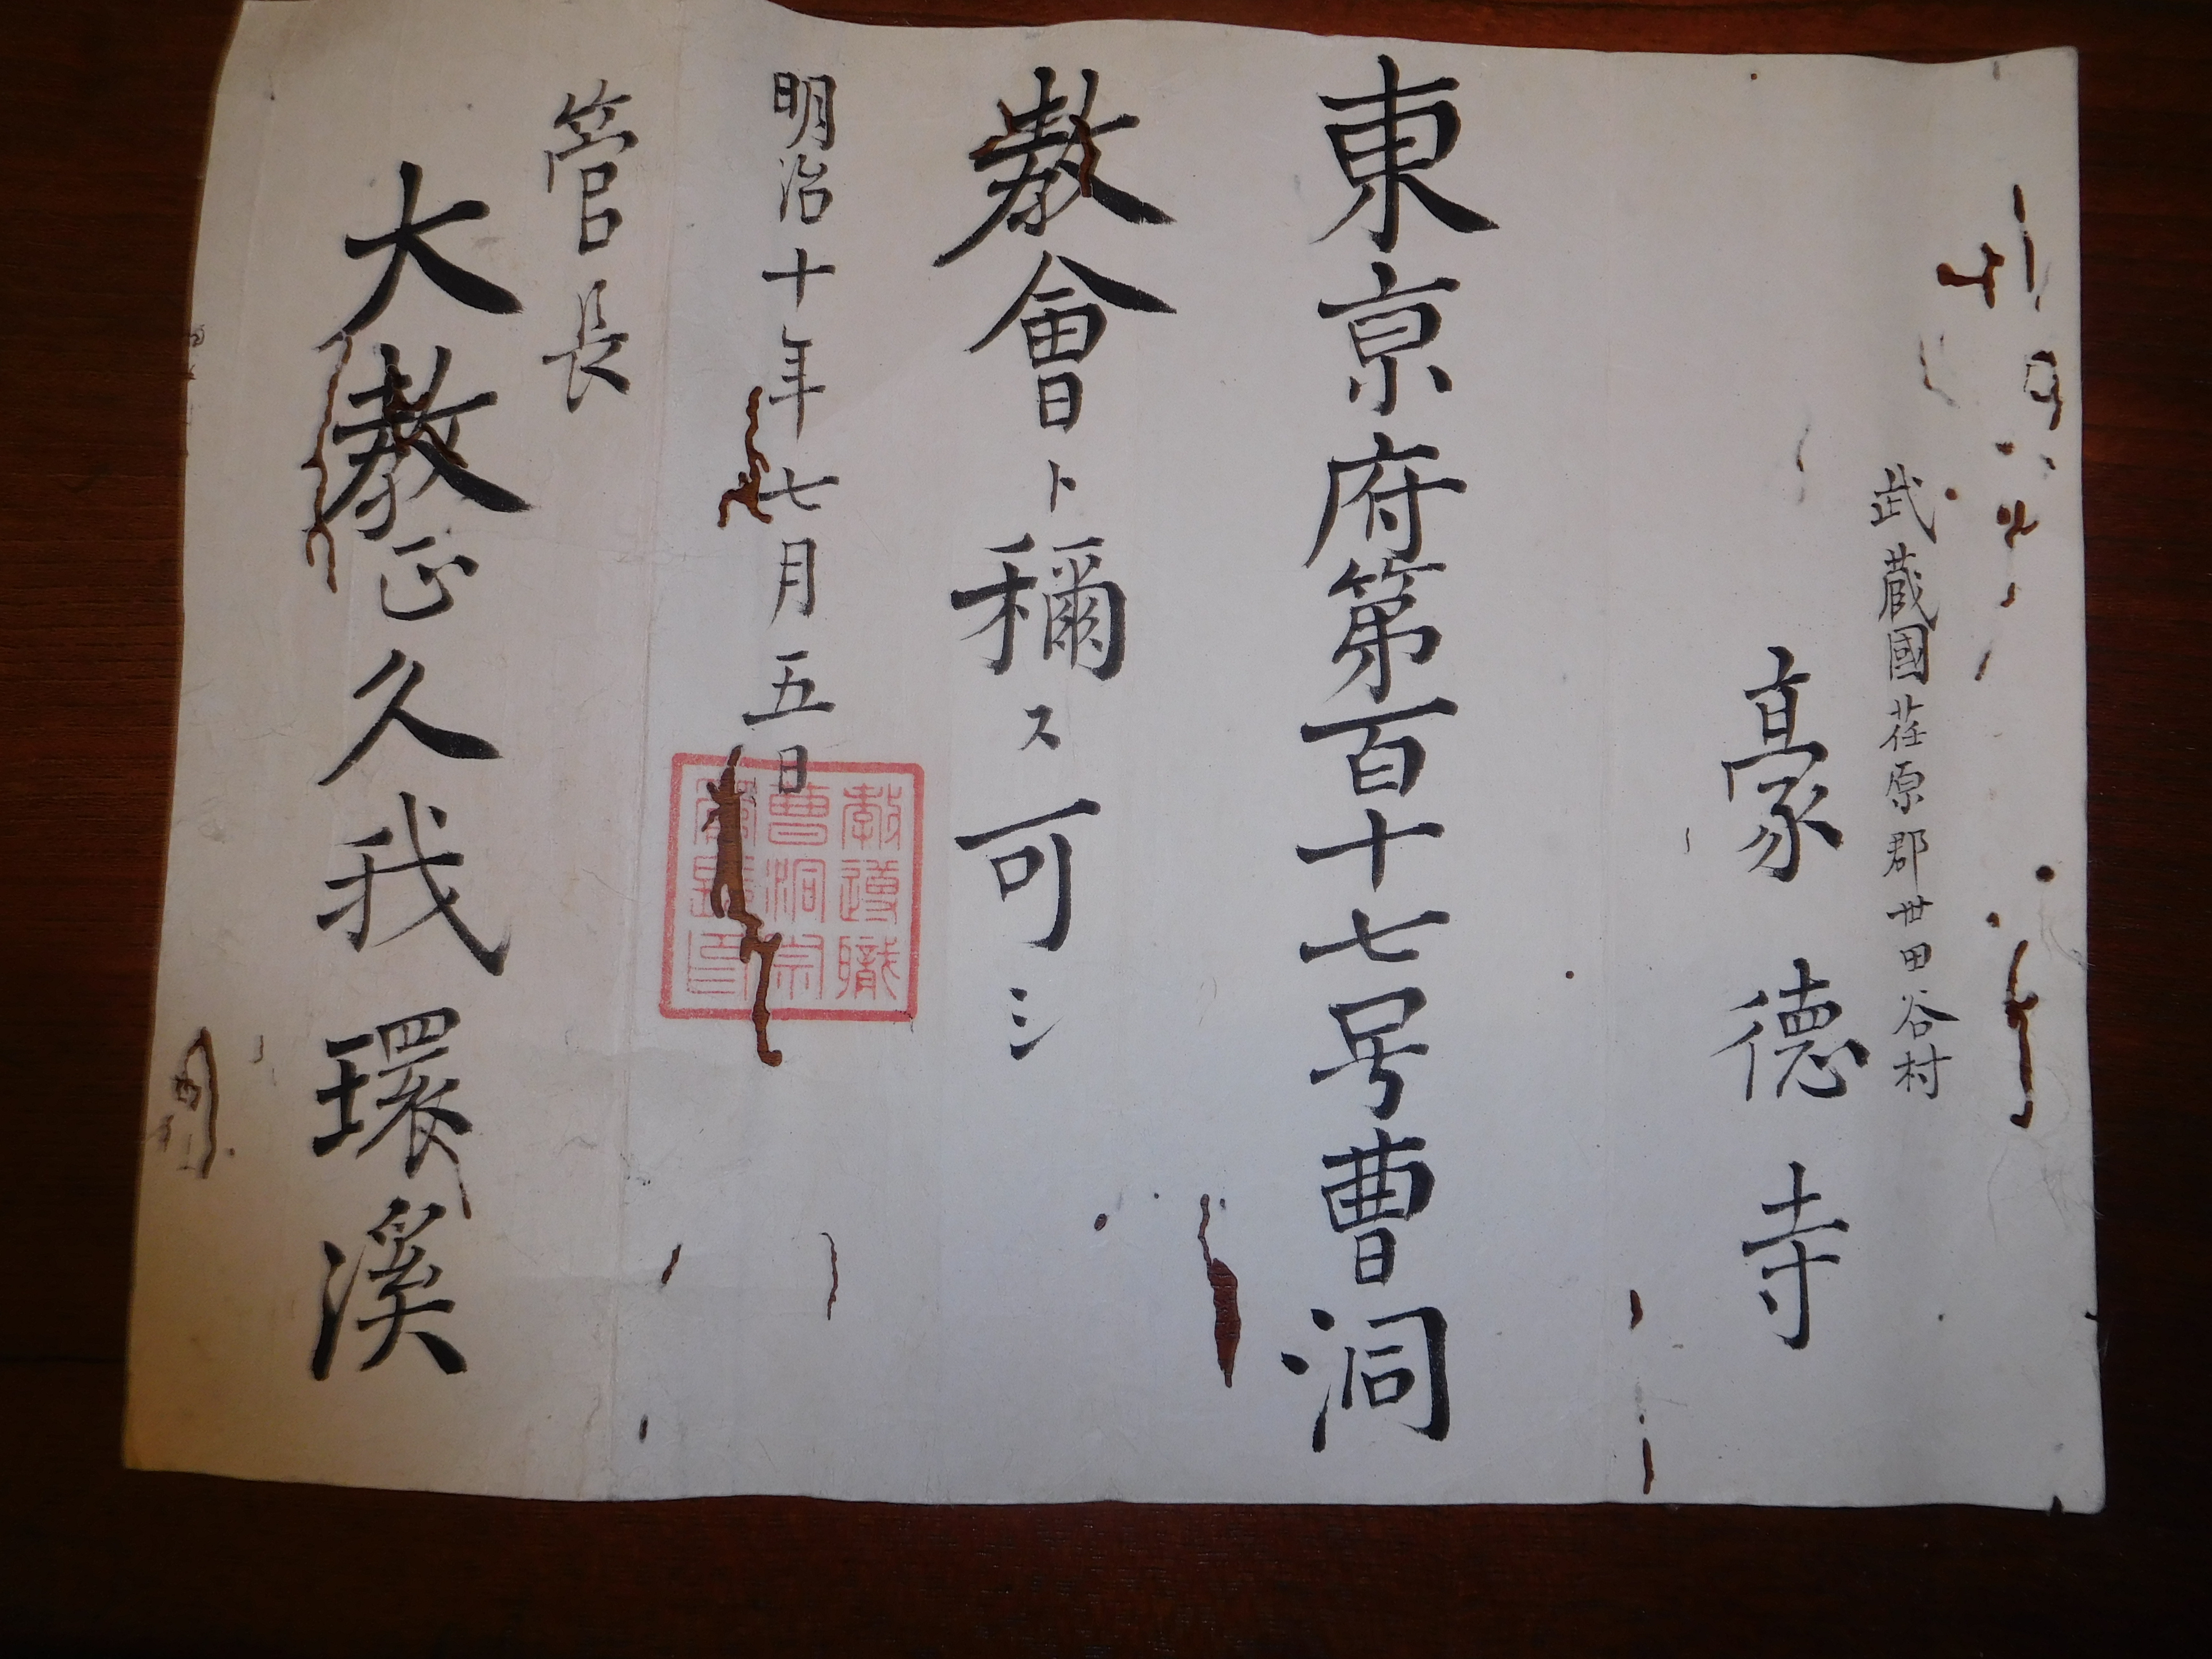 武蔵國荏原郡世田谷村
豪徳寺
東京府第百十七号曹洞
教會ト稱ス可シ
明治十年七月五日
管長
大教正久我環溪
教導職
曹洞宗